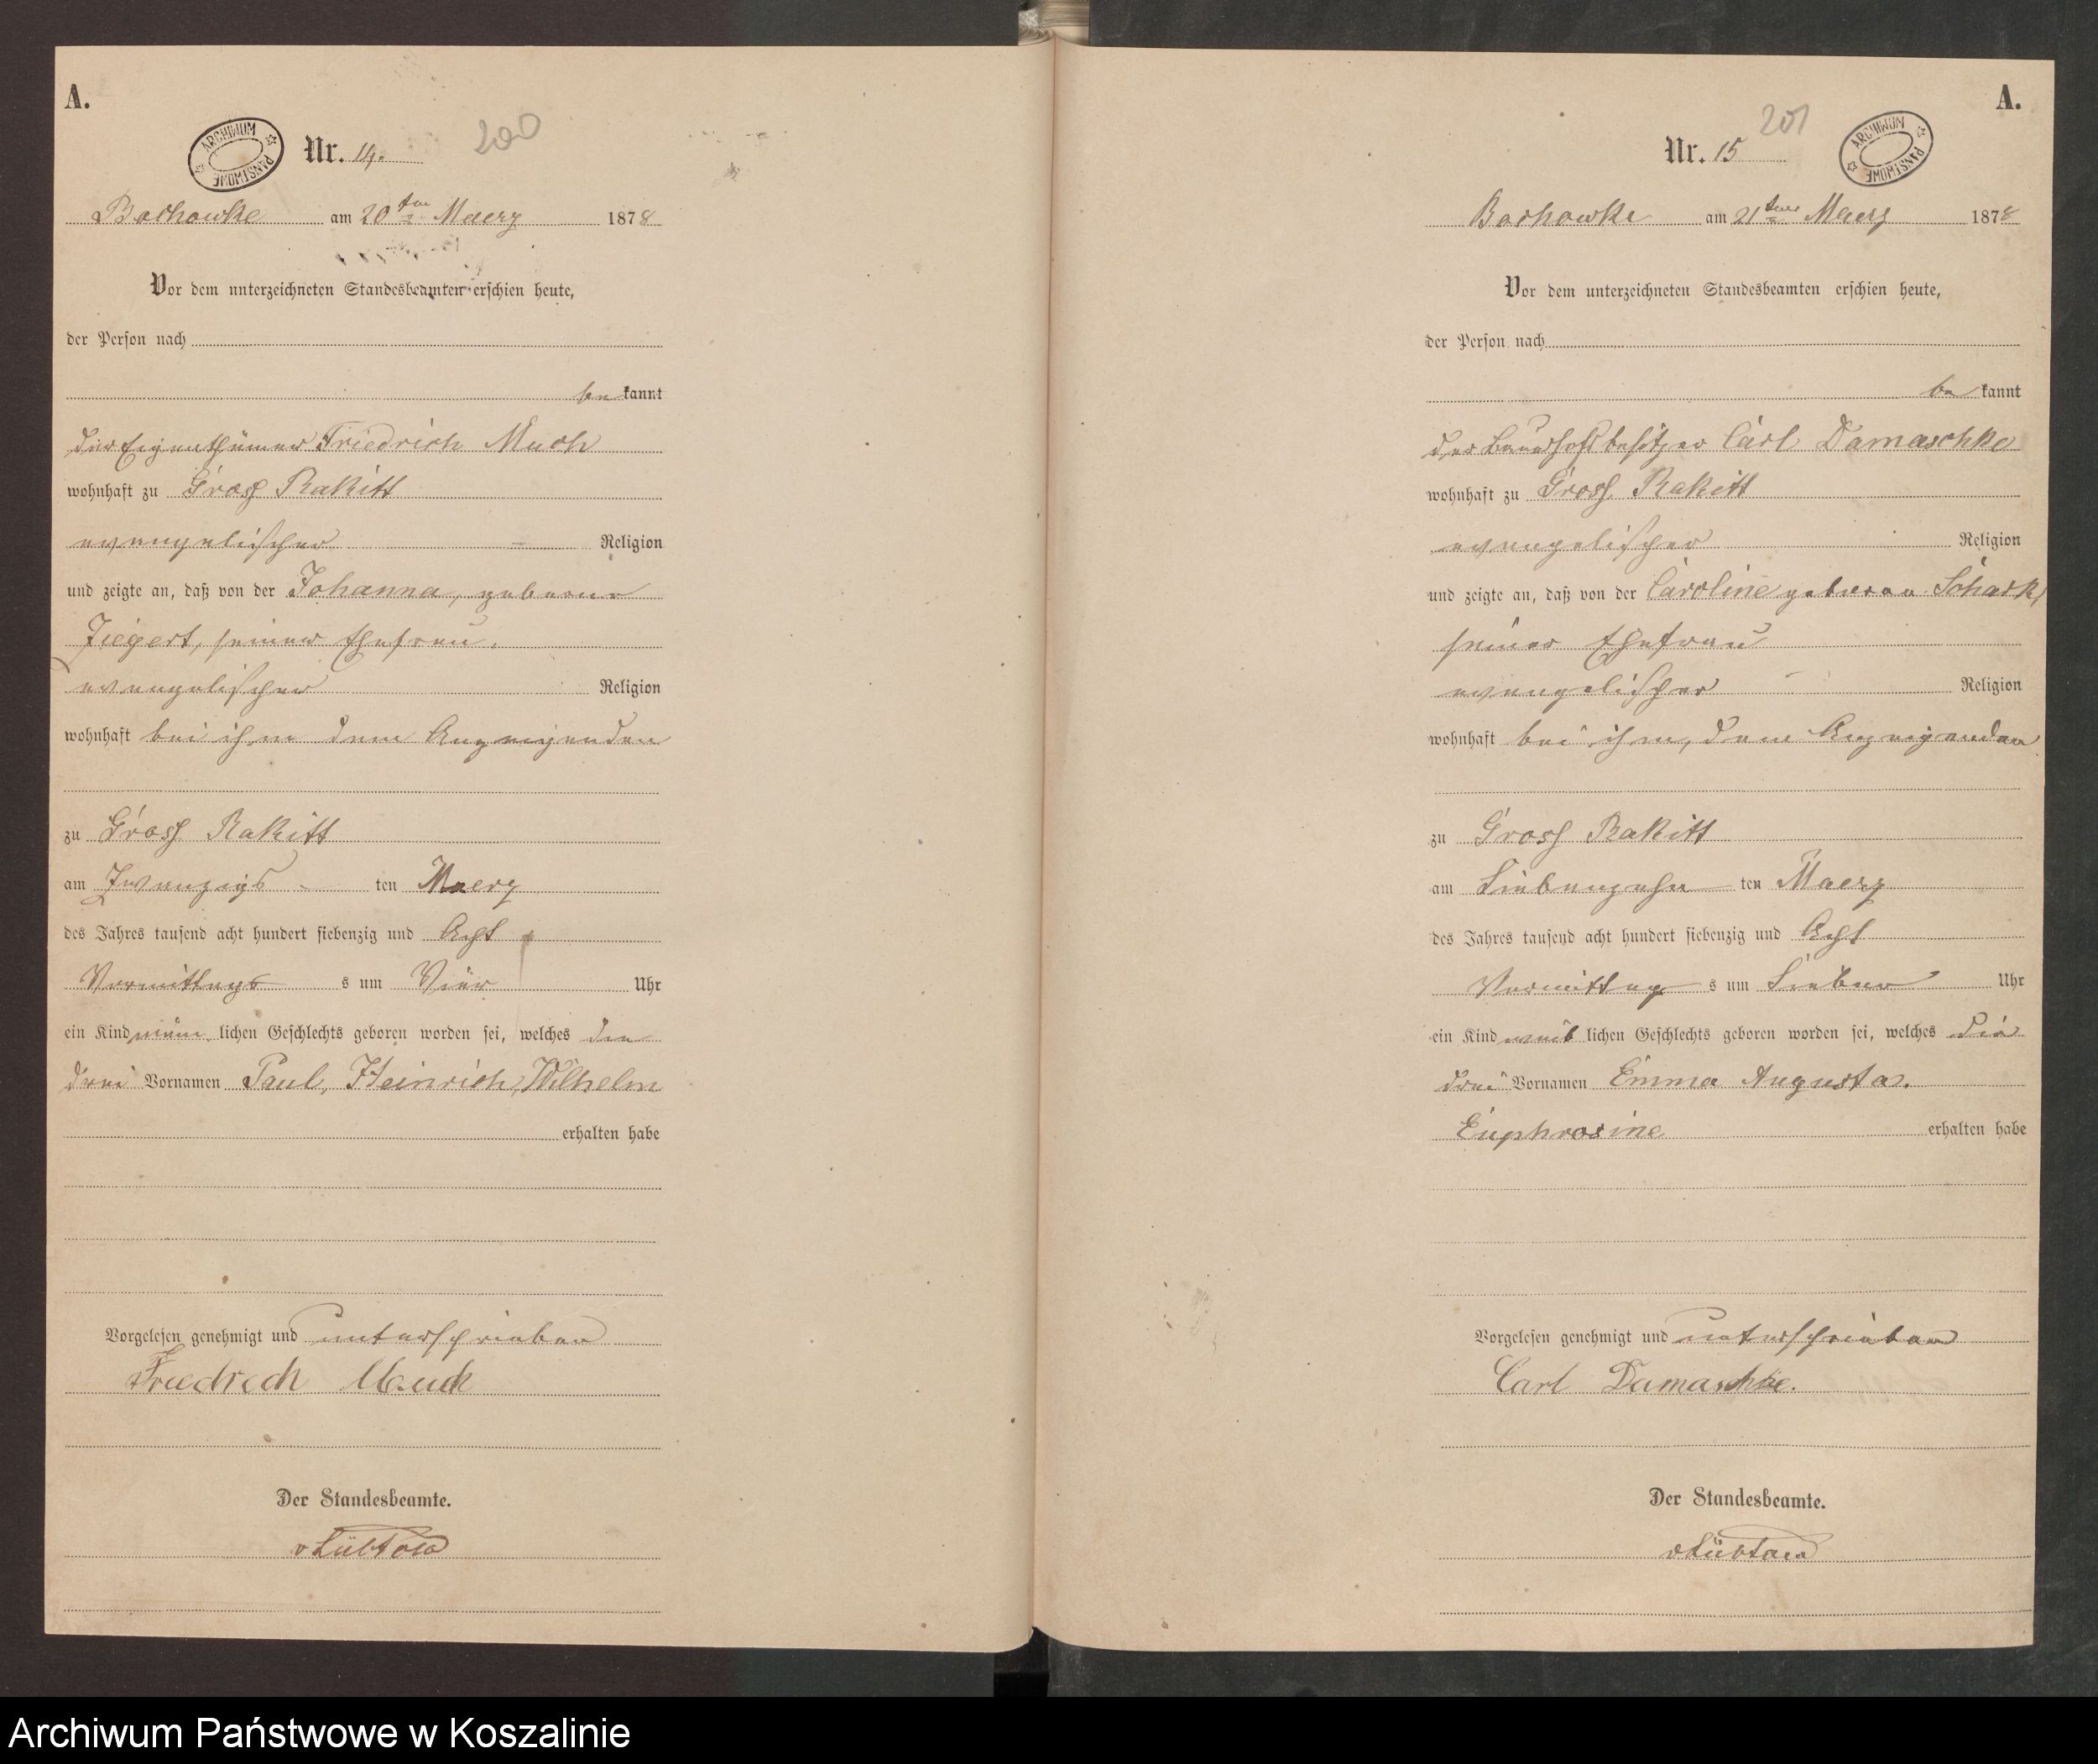 A.
ARCHIWUM PAŃSTWOWE
Nr. 14.
200
Bochowke am 20ten Maerz 1878
Vor dem unterzeichneten Standesbeamten erschien heute,
der Person nach
be kannt
der Eigenthümer Friedrich Much
wohnhaft zu Gross Rakitt
evangelischer Religion
und zeigte an, daß von der Johanna, geborene
Ziegert, seiner Ehefrau,
evangelischer Religion
wohnhaft bei ihm dem Anzeigenden
zu Gross Rakitt
am Zwanzigs ten Maerz
des Jahres tausend acht hundert siebenzig und Acht
Vormittags s um Vier Uhr
ein Kind männ lichen Geschlechts geboren worden sei, welches die
drei Vornamen Paul, Heinrich, Wilhelm
erhalten habe
Vorgelesen genehmigt und unterschrieben
Friedrich Much
Der Standesbeamte.
v Lübtow
A.
ARCHIWUM PAŃSTWOWE
Nr. 15
201
Bochowke am 21ten Maerz 1878
Vor dem unterzeichneten Standesbeamten erschien heute,
der Person nach
be kannt
der Bauerhofsbesitzer Carl Damaschke
wohnhaft zu Gross Rakitt
evangelischer Religion
und zeigte an, daß von der Caroline geborene Schark,
seiner Ehefrau
evangelischer Religion
wohnhaft bei ihm, dem Anzeigenden
zu Gross Rakitt
am Siebenzehn ten Maerz
des Jahres tausend acht hundert siebenzig und Acht
Vormittag s um Sieben Uhr
ein Kind weib lichen Geschlechts geboren worden sei, welches die
drei Vornamen Emma Augusta.
Euphrosine erhalten habe
Vorgelesen genehmigt und unterschrieben
Carl Damaschke.
Der Standesbeamte.
v Lübtow
Archiwum Państwowe w Koszalinie